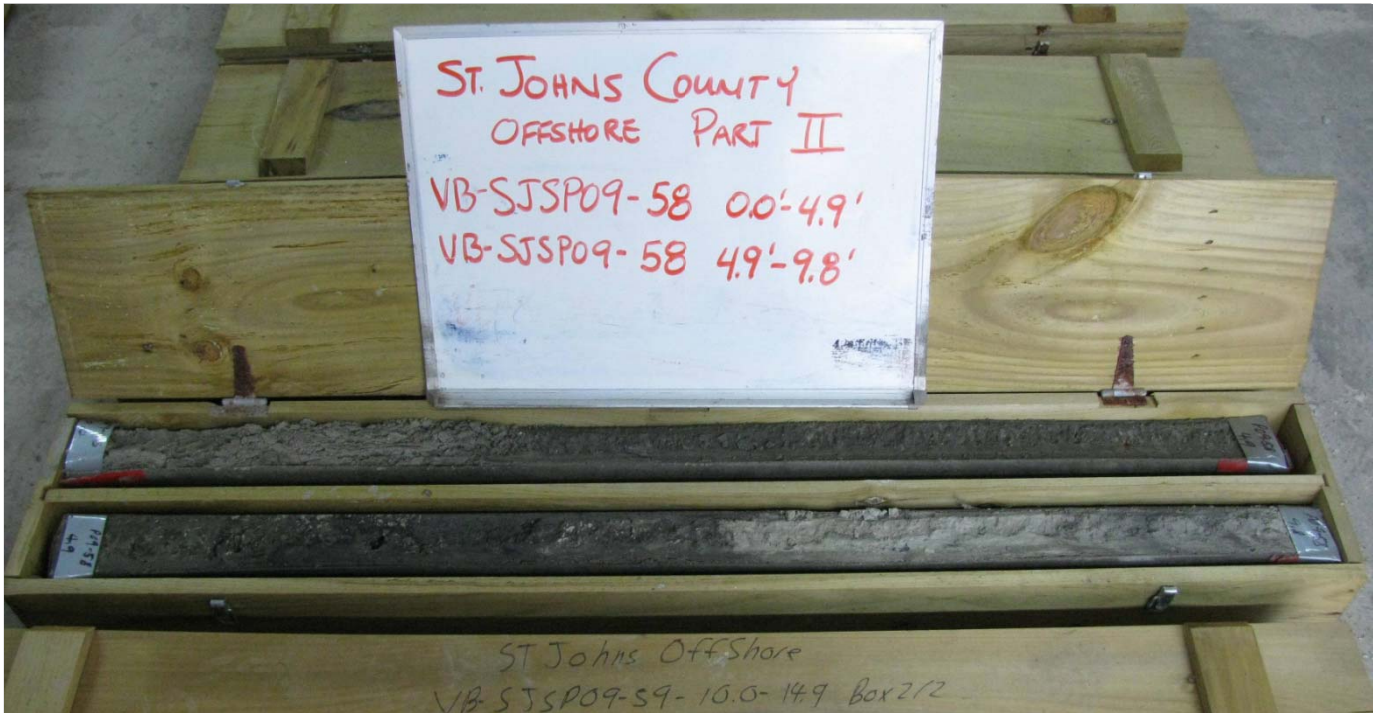 ST. JOHNS COUNTY
OFFSHORE PART II
VB-SJSP09-58 0.0'-4.9'
VB-SJSP09-58 4.9'-9.8'
P09-58
4.9
ST Johns OffShore
VB-SJSP09-59-10.0-14.9 Box 2/2